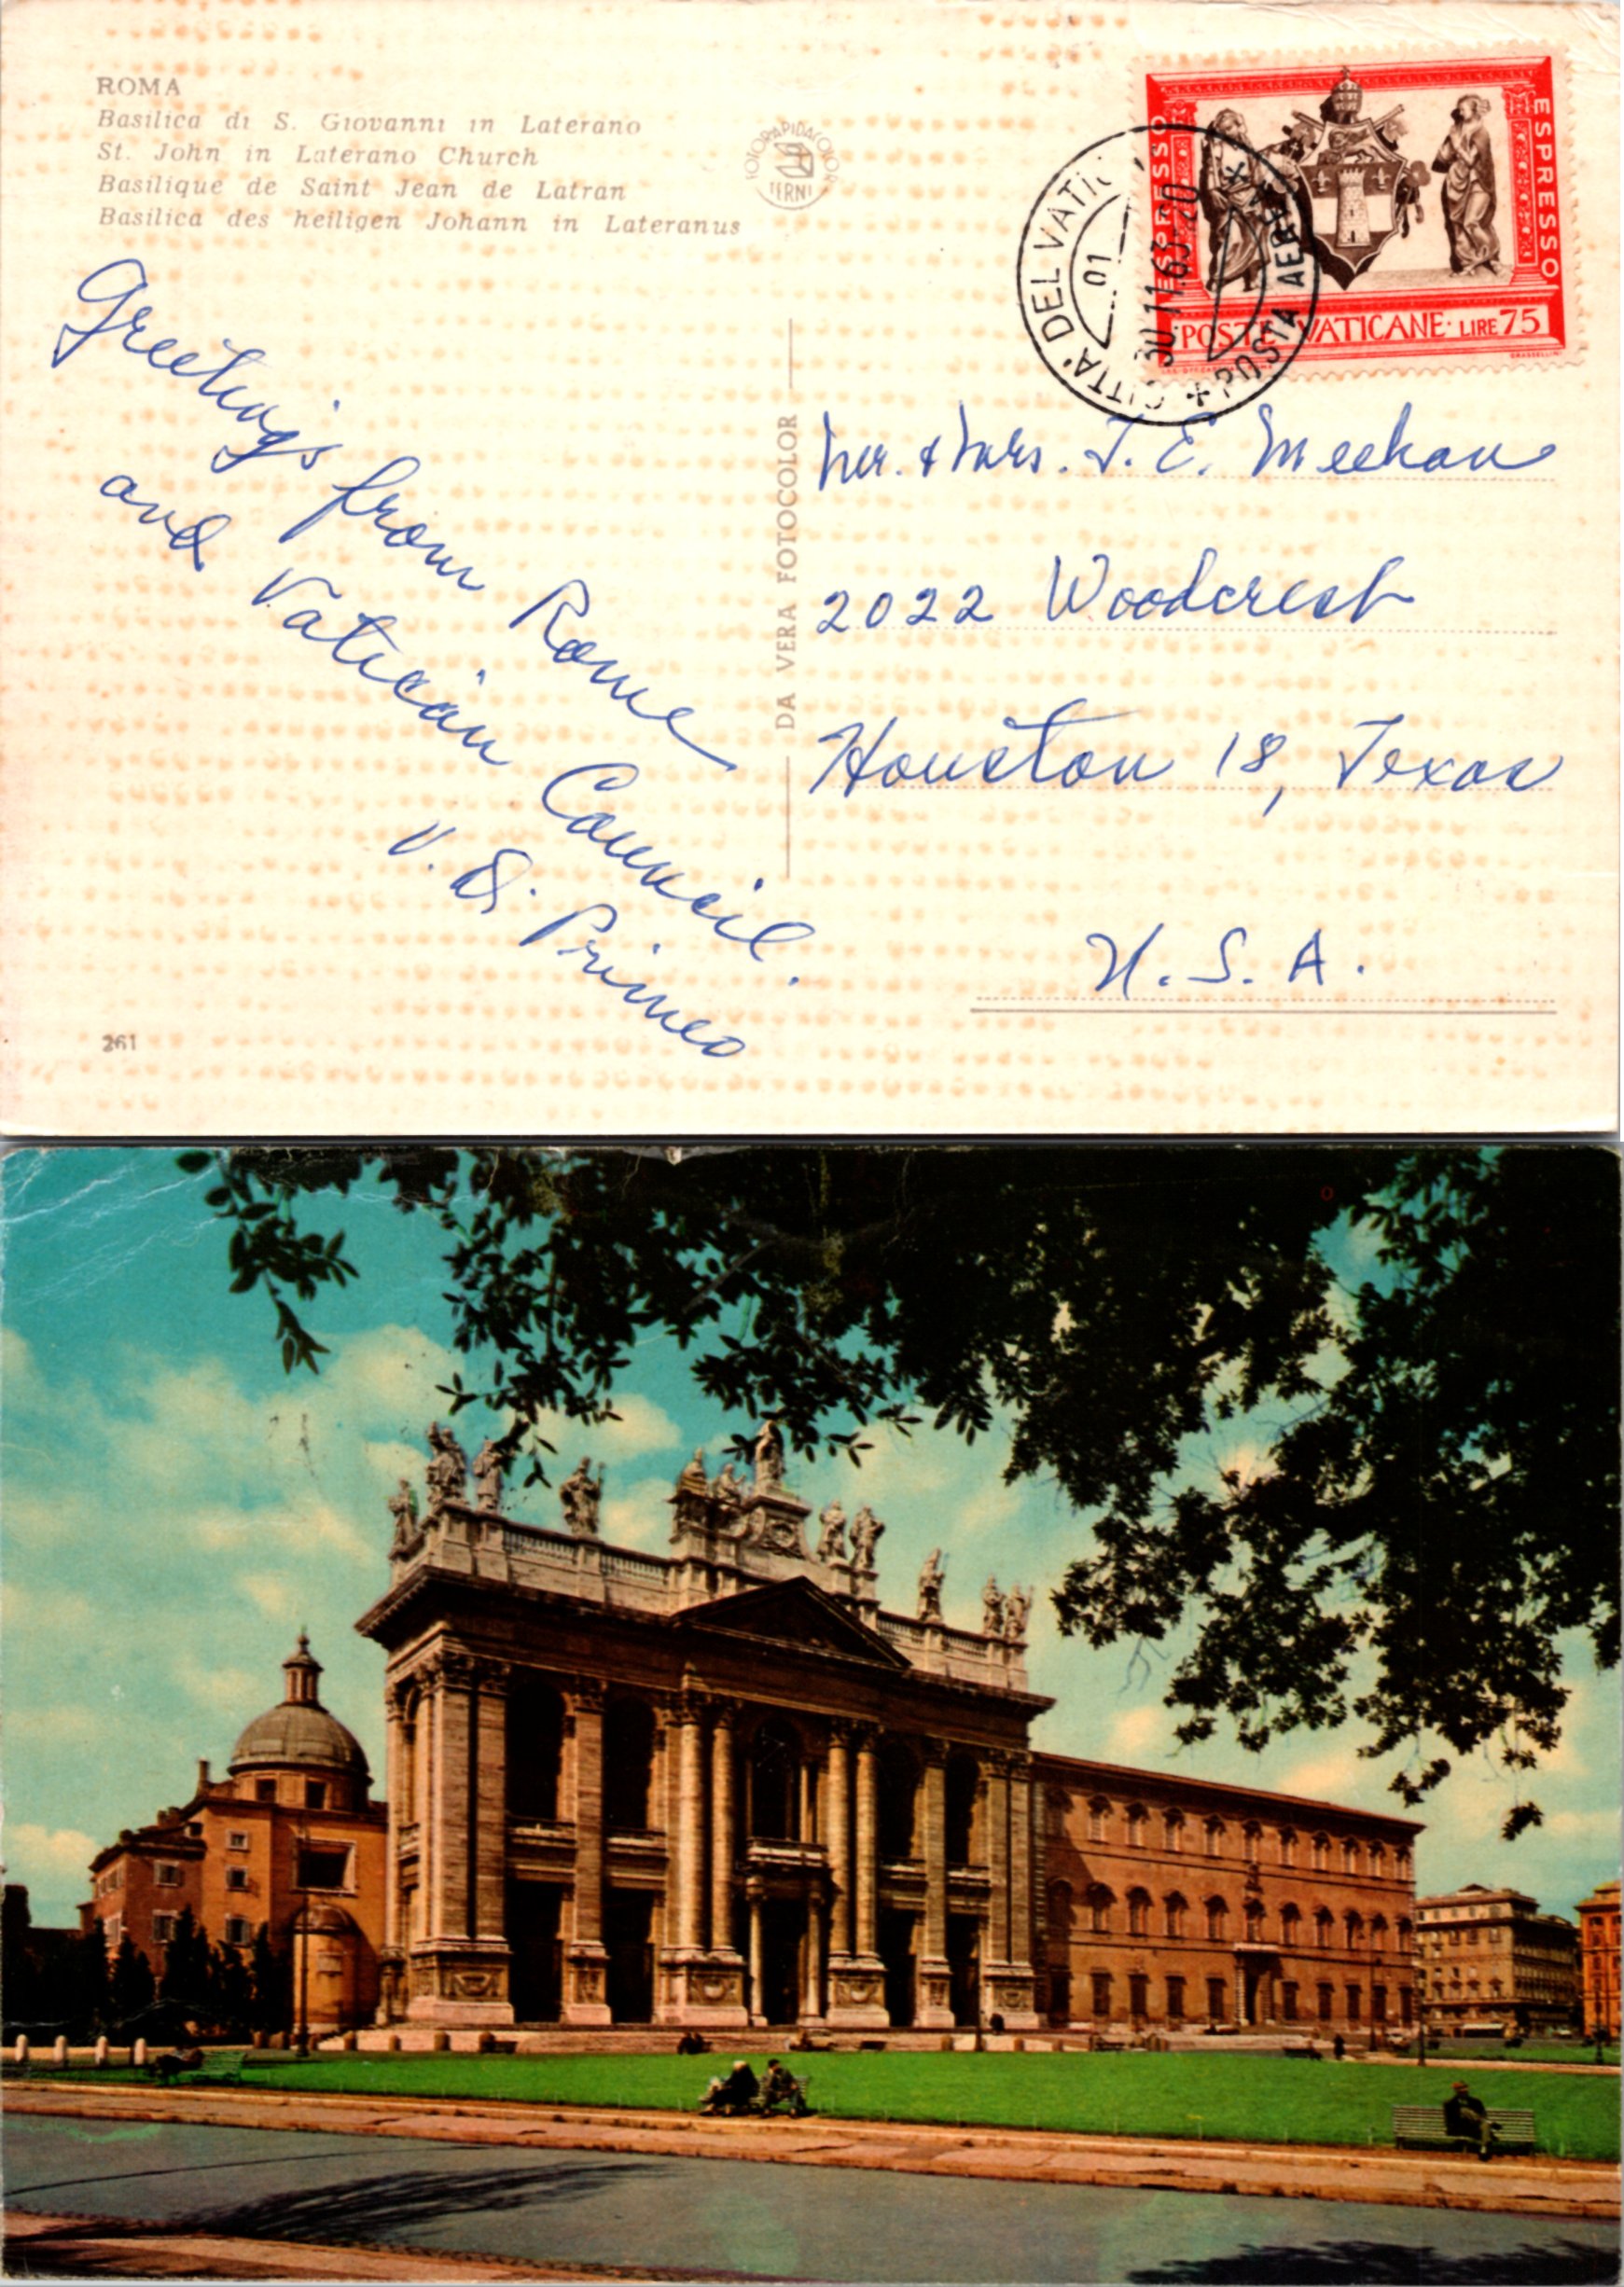 ROMA
Basilica di S. Giovanni in Laterano
St. John in Laterano Church
Basilique de Saint Jean de Latran
Basilica des heiligen Johann in Lateranus
FOTORAPIDACOLOR
TERNI
ESPRESSO
ESPRESSO
POSTE VATICANE · LIRE 75
CITTA' DEL VATIC
POSTA AEREA
01
30.11.63-20
Greetings from Rome
and Vatican Council.
V. D. Primeo
DA VERA FOTOCOLOR
Mr. & Mrs. J. E. Meehan
2022 Woodcrest
Houston 18, Texas
U.S.A.
261